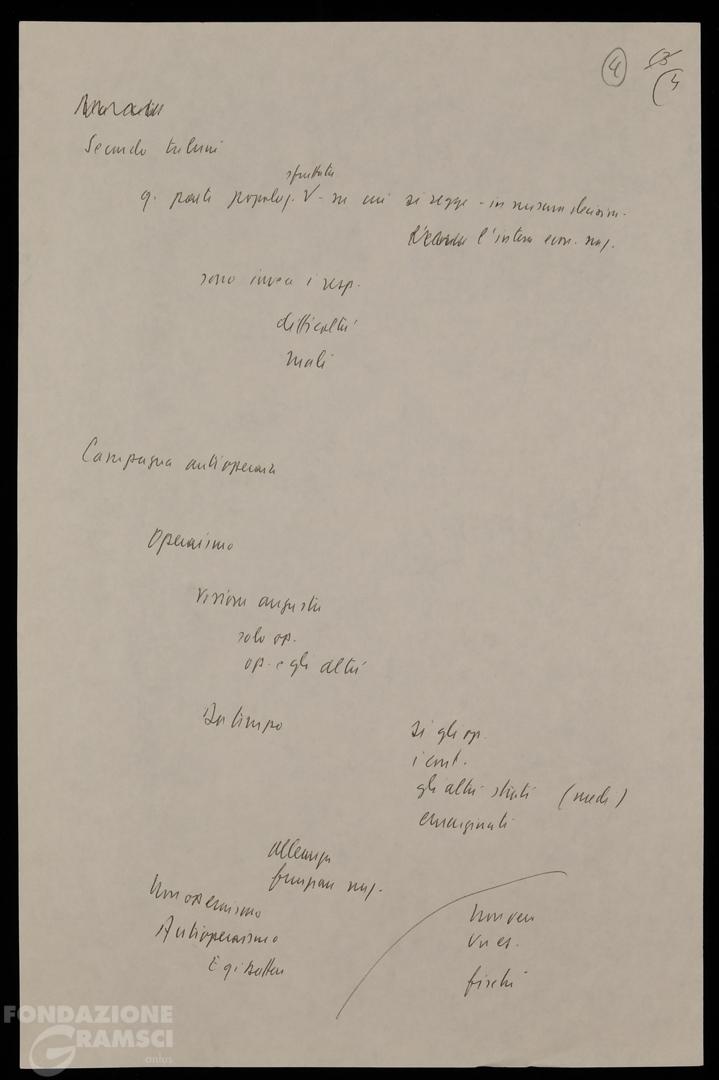 4
13
14
Secondo taluni
sfruttata
q. parte popolaz. V - su cui si regge - in misura decisiva -
l'intera econ. naz.
sono invece i resp.
difficoltà
mali
Campagna antioperaia
Operaismo
Visione angusta
solo op.
op. e gli altri
Da tempo
Si gli op.
i cont.
gli altri strati (medi)
emarginati
alleanza
funzione naz.
Non operaismo
Antioperaismo
E qi batter
Non ven
Un es.
fischi
FONDAZIONE
GRAMSCI
onlus